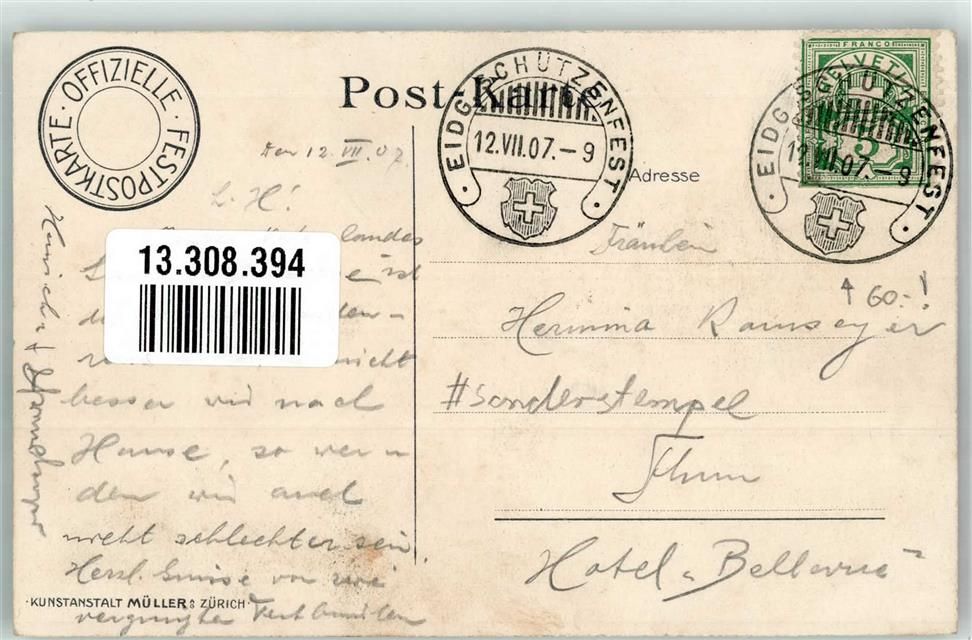 OFFIZIELLE · FESTPOSTKARTE ·
Post-Karte
EIDG. SCHÜTZENFEST
12.VII.07.-9
FRANCO
HELVETIA
5
EIDG. SCHÜTZENFEST
12.VII.07.-9
Adresse
Den 12. VII. 07.
L. H!
landes
ist
13.308.394
nicht
besser wird nach
Hause, so wer-
den wir auch
nicht schlechter sein.
Herzl. Grüsse von zwei
vergnügten Festbumlern
Fräulein
60.-!
Hermina Ramseyer
#Sonderstempel
Thun
Hotel „Bellevue"
·KUNSTANSTALT MÜLLER & Co ZÜRICH·